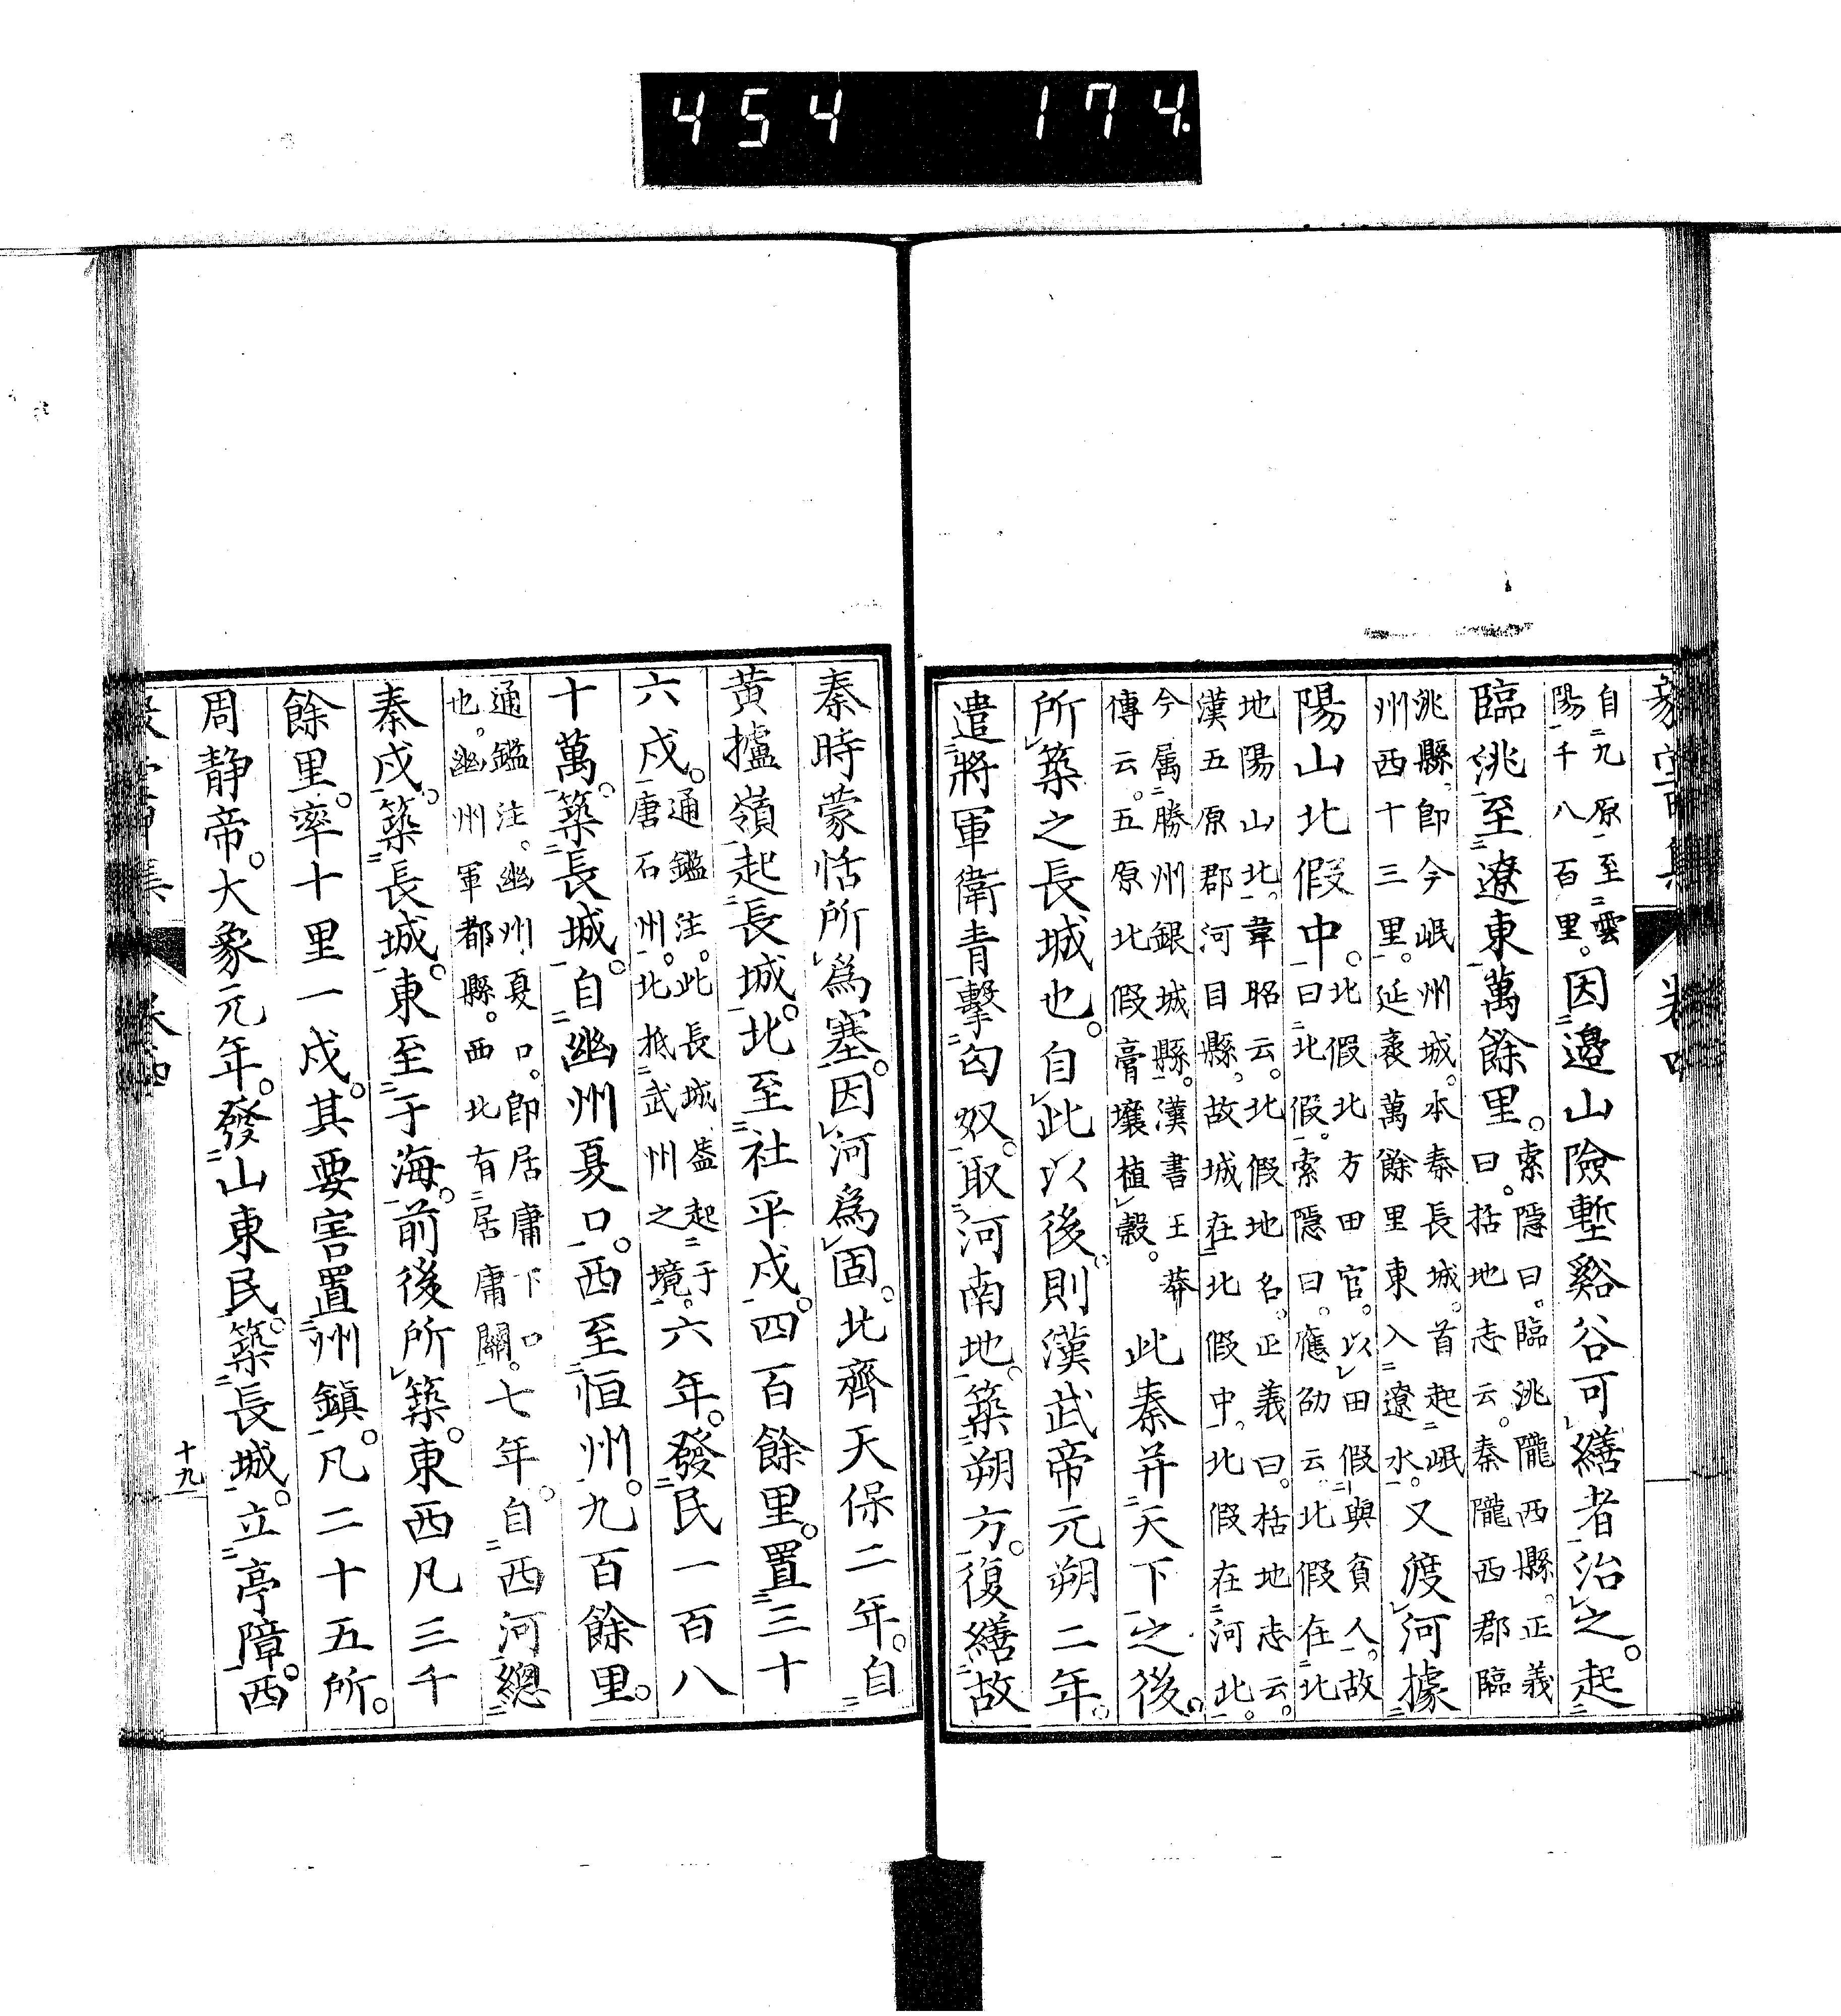 自九原至雲陽千八百里。因邊山險塹谿谷可繕者治之。起
臨洮至遼東萬餘里。索隱曰。臨洮隴西縣。正義曰。括地志云。秦隴西郡臨
洮縣、即今岷州城。本秦長城。首起岷州西十三里。延袤萬餘里東入遼水。又渡河據
陽山北假中。北假北方田官。以田假與貧人。故曰北假。索隱曰。應劭云北假在北
地陽山北。韋昭云。北假地名。正義曰。括地志云。漢五原郡河目縣、故城在北假中、北假在河北。
今属勝州銀城縣。漢書王莽傳云。五原北假膏壤植穀。此秦并天下之後。
所築之長城也。自此以後則漢武帝元朔二年。
遣將軍衛青擊匈奴。取河南地。築朔方。復繕故
秦時蒙恬所爲塞。因河爲固。北齊天保二年。自
黄攎嶺起長城。北至社平戍。四百餘里。置三十
六戍。通鑑注。此長城盖起于唐石州。北抵武州之境。六年。發民一百八
十萬。築長城。自幽州夏口。西至恒州。九百餘里。
通鑑注。幽州夏口。即居庸下口也。幽州軍都縣。西北有居庸關。七年。自西河總
秦戍。築長城。東至于海。前後所築。東西凡三千
餘里。率十里一戍。其要害置州鎮。凡二十五所。
周静帝。大象元年。發山東民。築長城。立亭障。西
十九
454 174